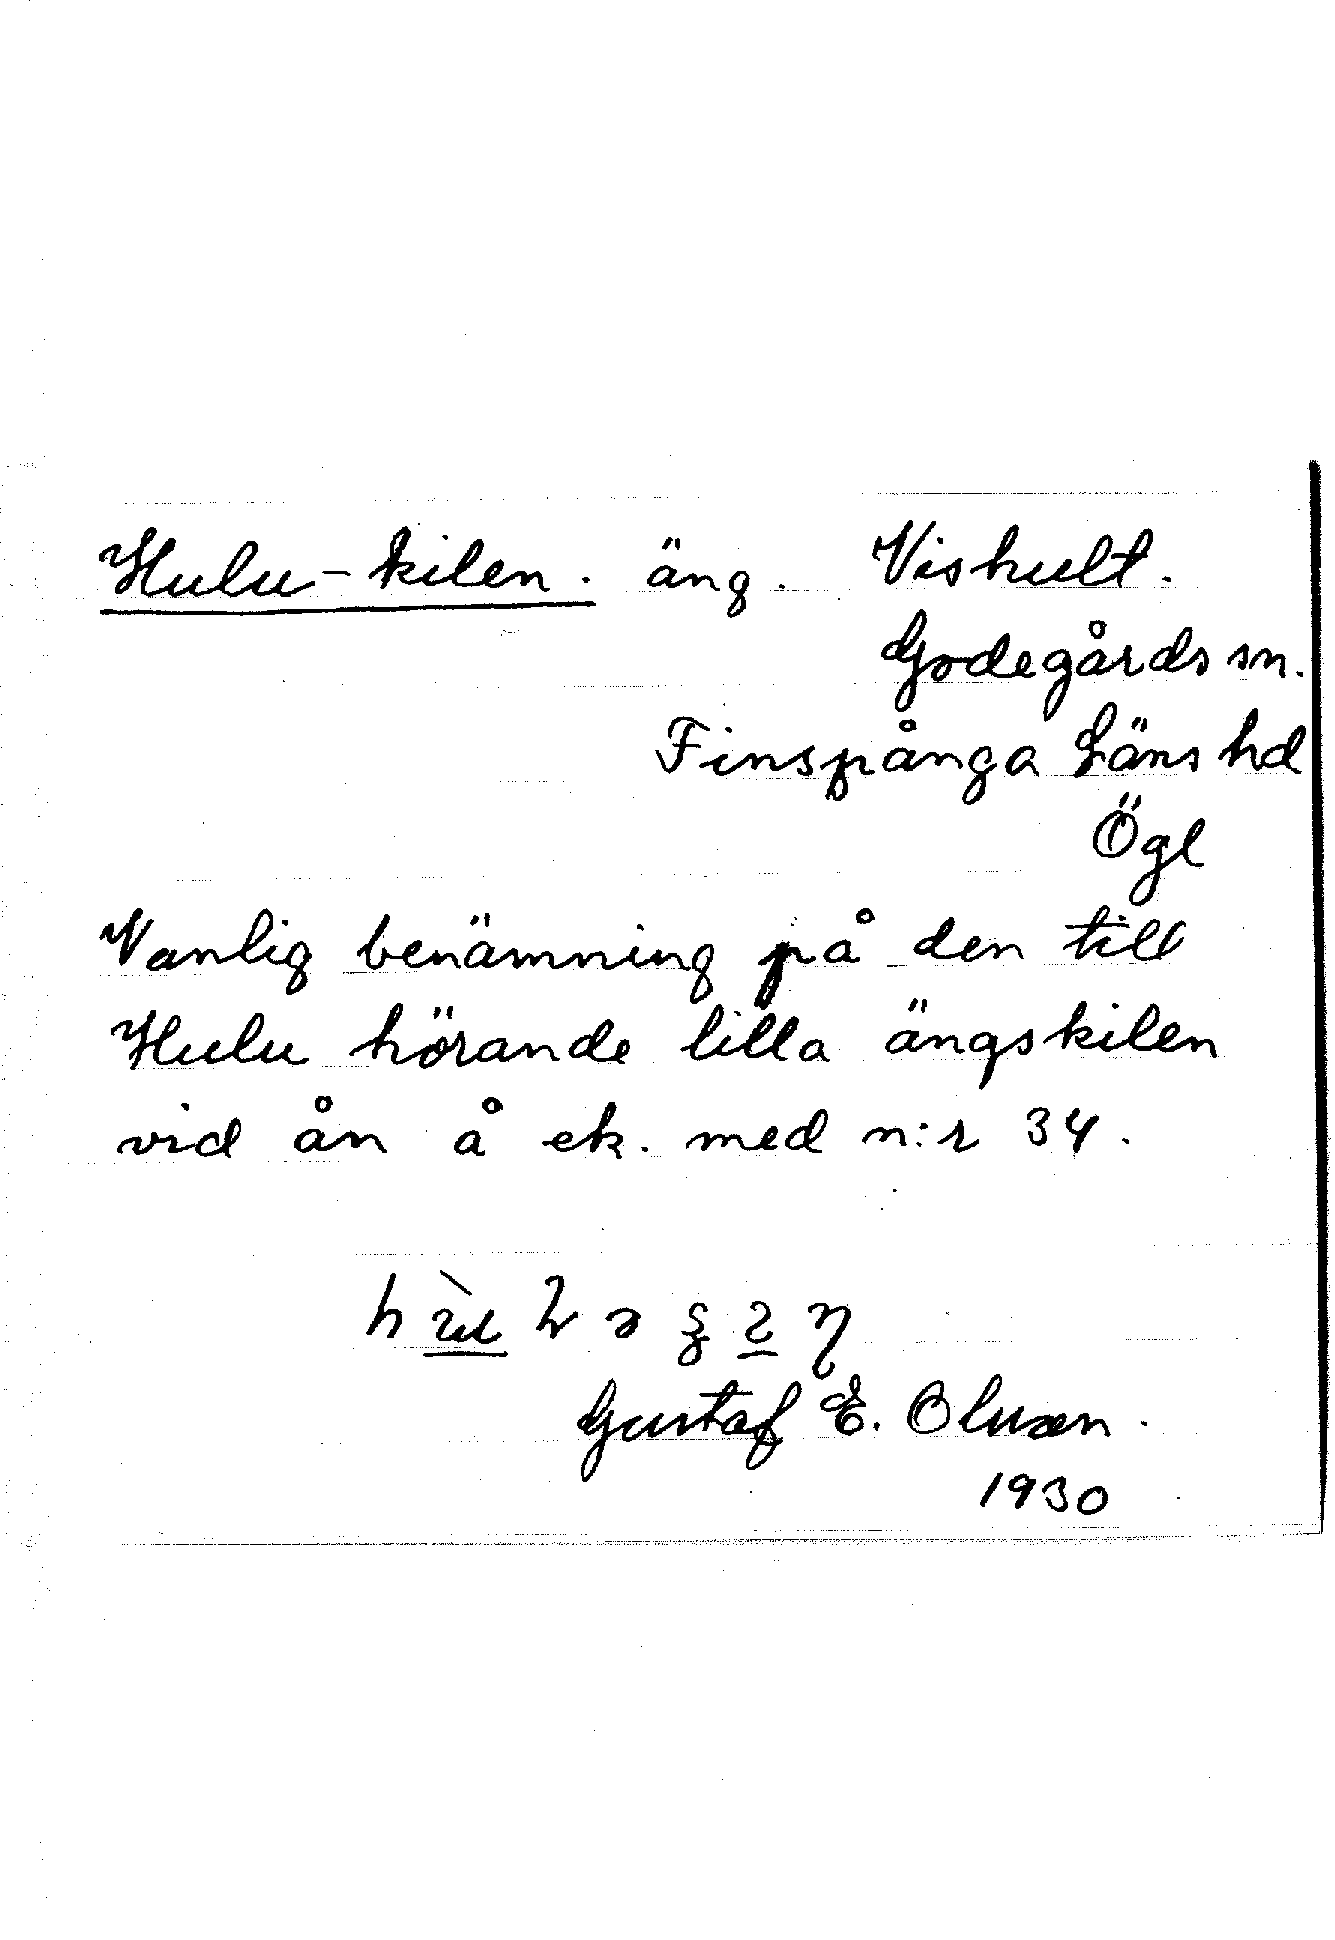 Hulu-kilen. äng. Vishult.
Godegårds sn.
Finspånga Läns hd
Ögl
Vanlig benämning på den till
Hulu hörande lilla ängskilen
vid ån å ek. med n:r 34.
Gustaf E. Oluæn.
1930